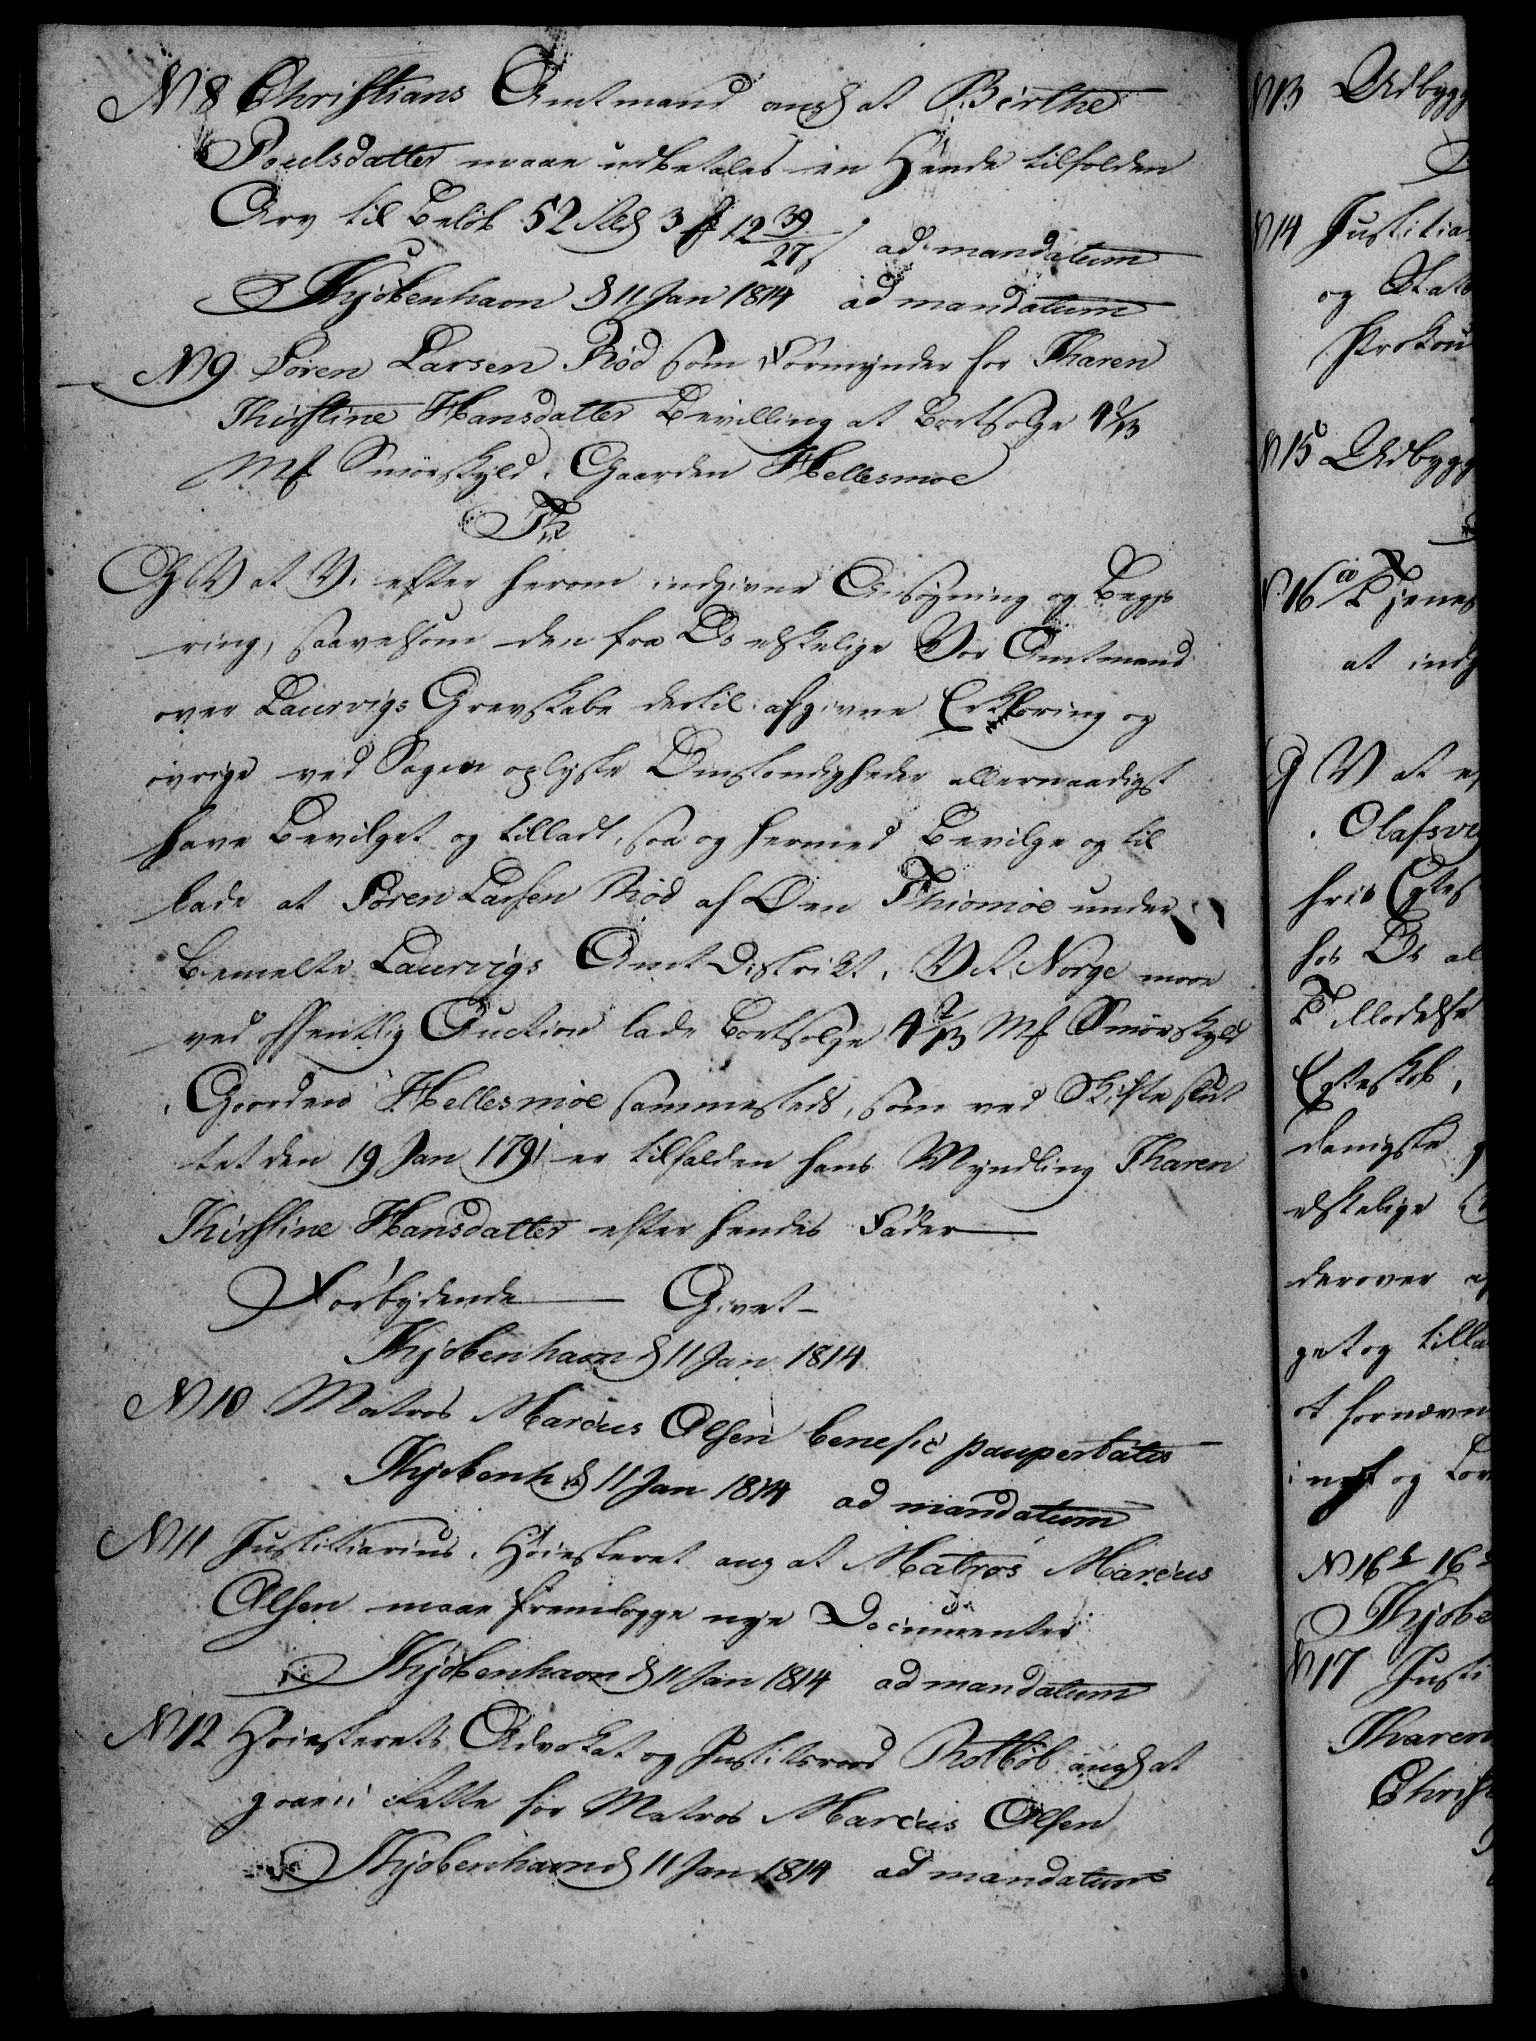 N 8 Christians Amtmand angd at Birthe
Poulsdatter maae udbetales en Hende tilfalden
Arv til Beløb 52 Rd 3 ℔ 12 39/27 s ad mandatum
Kjøbenhavn d 11 Jan 1814 ad mandatum
N 9 Søren Larsen Rød som Formynder for Karen
Kirstine Hansdatter Bevilling at bortsælge 4 2/13
Mk Smørskyld i Gaarden Hellesmoe
GW at Vi efter herom indgivne Ansøgning og Begjæ
ring, saavelsom den fra Os elskelige Vor Amtmand
over Laurvigs Grevskabe dertil afgivne Erklæring og
øvrige ved Sagen oplyste Omstændigheder allernaadigst
have bevilget og tilladt, saa og hermed bevilge og til
lade at Søren Larsen Rød af Øen Thiømøe under
bemelte Laurvigs Amt District, i Vt Rige Norge maae
ved offentlig Auction lade bortsælge 4 2/13 Mk Smørskyld
i Gaarden Hellesmoe sammesteds, som ved Skifte slut
tet den 19 Jan 1791 er tilfalden hans Myndling Karen
Kirstine Hansdatter efter hendes Fader
Forbydende Givet
Kjøbenhavn d 11 Jan 1814
N 10 Matros Marcus Olsen benefic paupertatis
Kjøbenh d 11 Jan 1814 ad mandatum
N 11 Justitiarius i Høiesteret ang at Matros Marcus
Olsen maae fremlægge nye Documenter
Kjøbenhavn d 11 Jan 1814 ad mandatum
N 12 Høiesterets Advokat og Justitsraad Rotbøl angd at
gaae i Rette for Matros Marcus Olsen
Kjøbenhavn d 11 Jan 1814 ad mandatum
N 13 Udbygg
N 14 Justitia
og Stat
Prokur
N 15 Udbygg
N 16 a Tjenes
at ind
G W at e
Olafsvi
hos Os al
Tilladelse
Egteskab,
elskelige
derover
get og tilla
at fornævn
N 16 b 16
Kjøbe
N 17 Justi
Karen
Christ